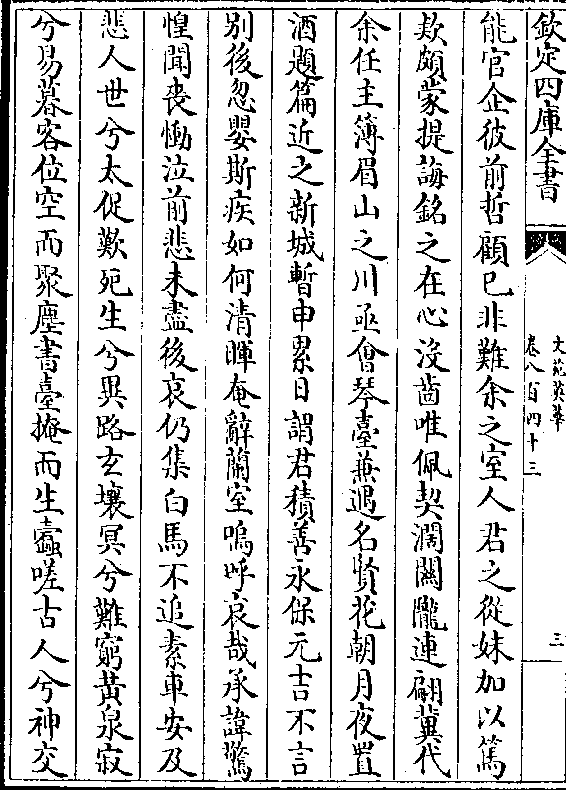 欽定四庫全書
文苑英華
卷八百四十三
三
能官企彼前哲顧已非難余之室人君之從妹加以篤
欵頗蒙提誨銘之在心沒齒唯佩契濶關隴連翩冀代
余任主簿眉山之川亟會琴臺兼遇名賢花朝月夜置
酒題篇近之新城暫申累日謂君積善永保元吉不言
别後忽嬰斯疾如何清暉奄辭蘭室嗚呼哀哉承諱驚
惶聞喪慟泣前悲未盡後哀仍集白馬不追素車安及
悲人世兮太促歎死生兮異路玄壤冥兮難窮黄泉寂
兮易暮客位空而聚塵書臺掩而生蠹嗟古人兮神交